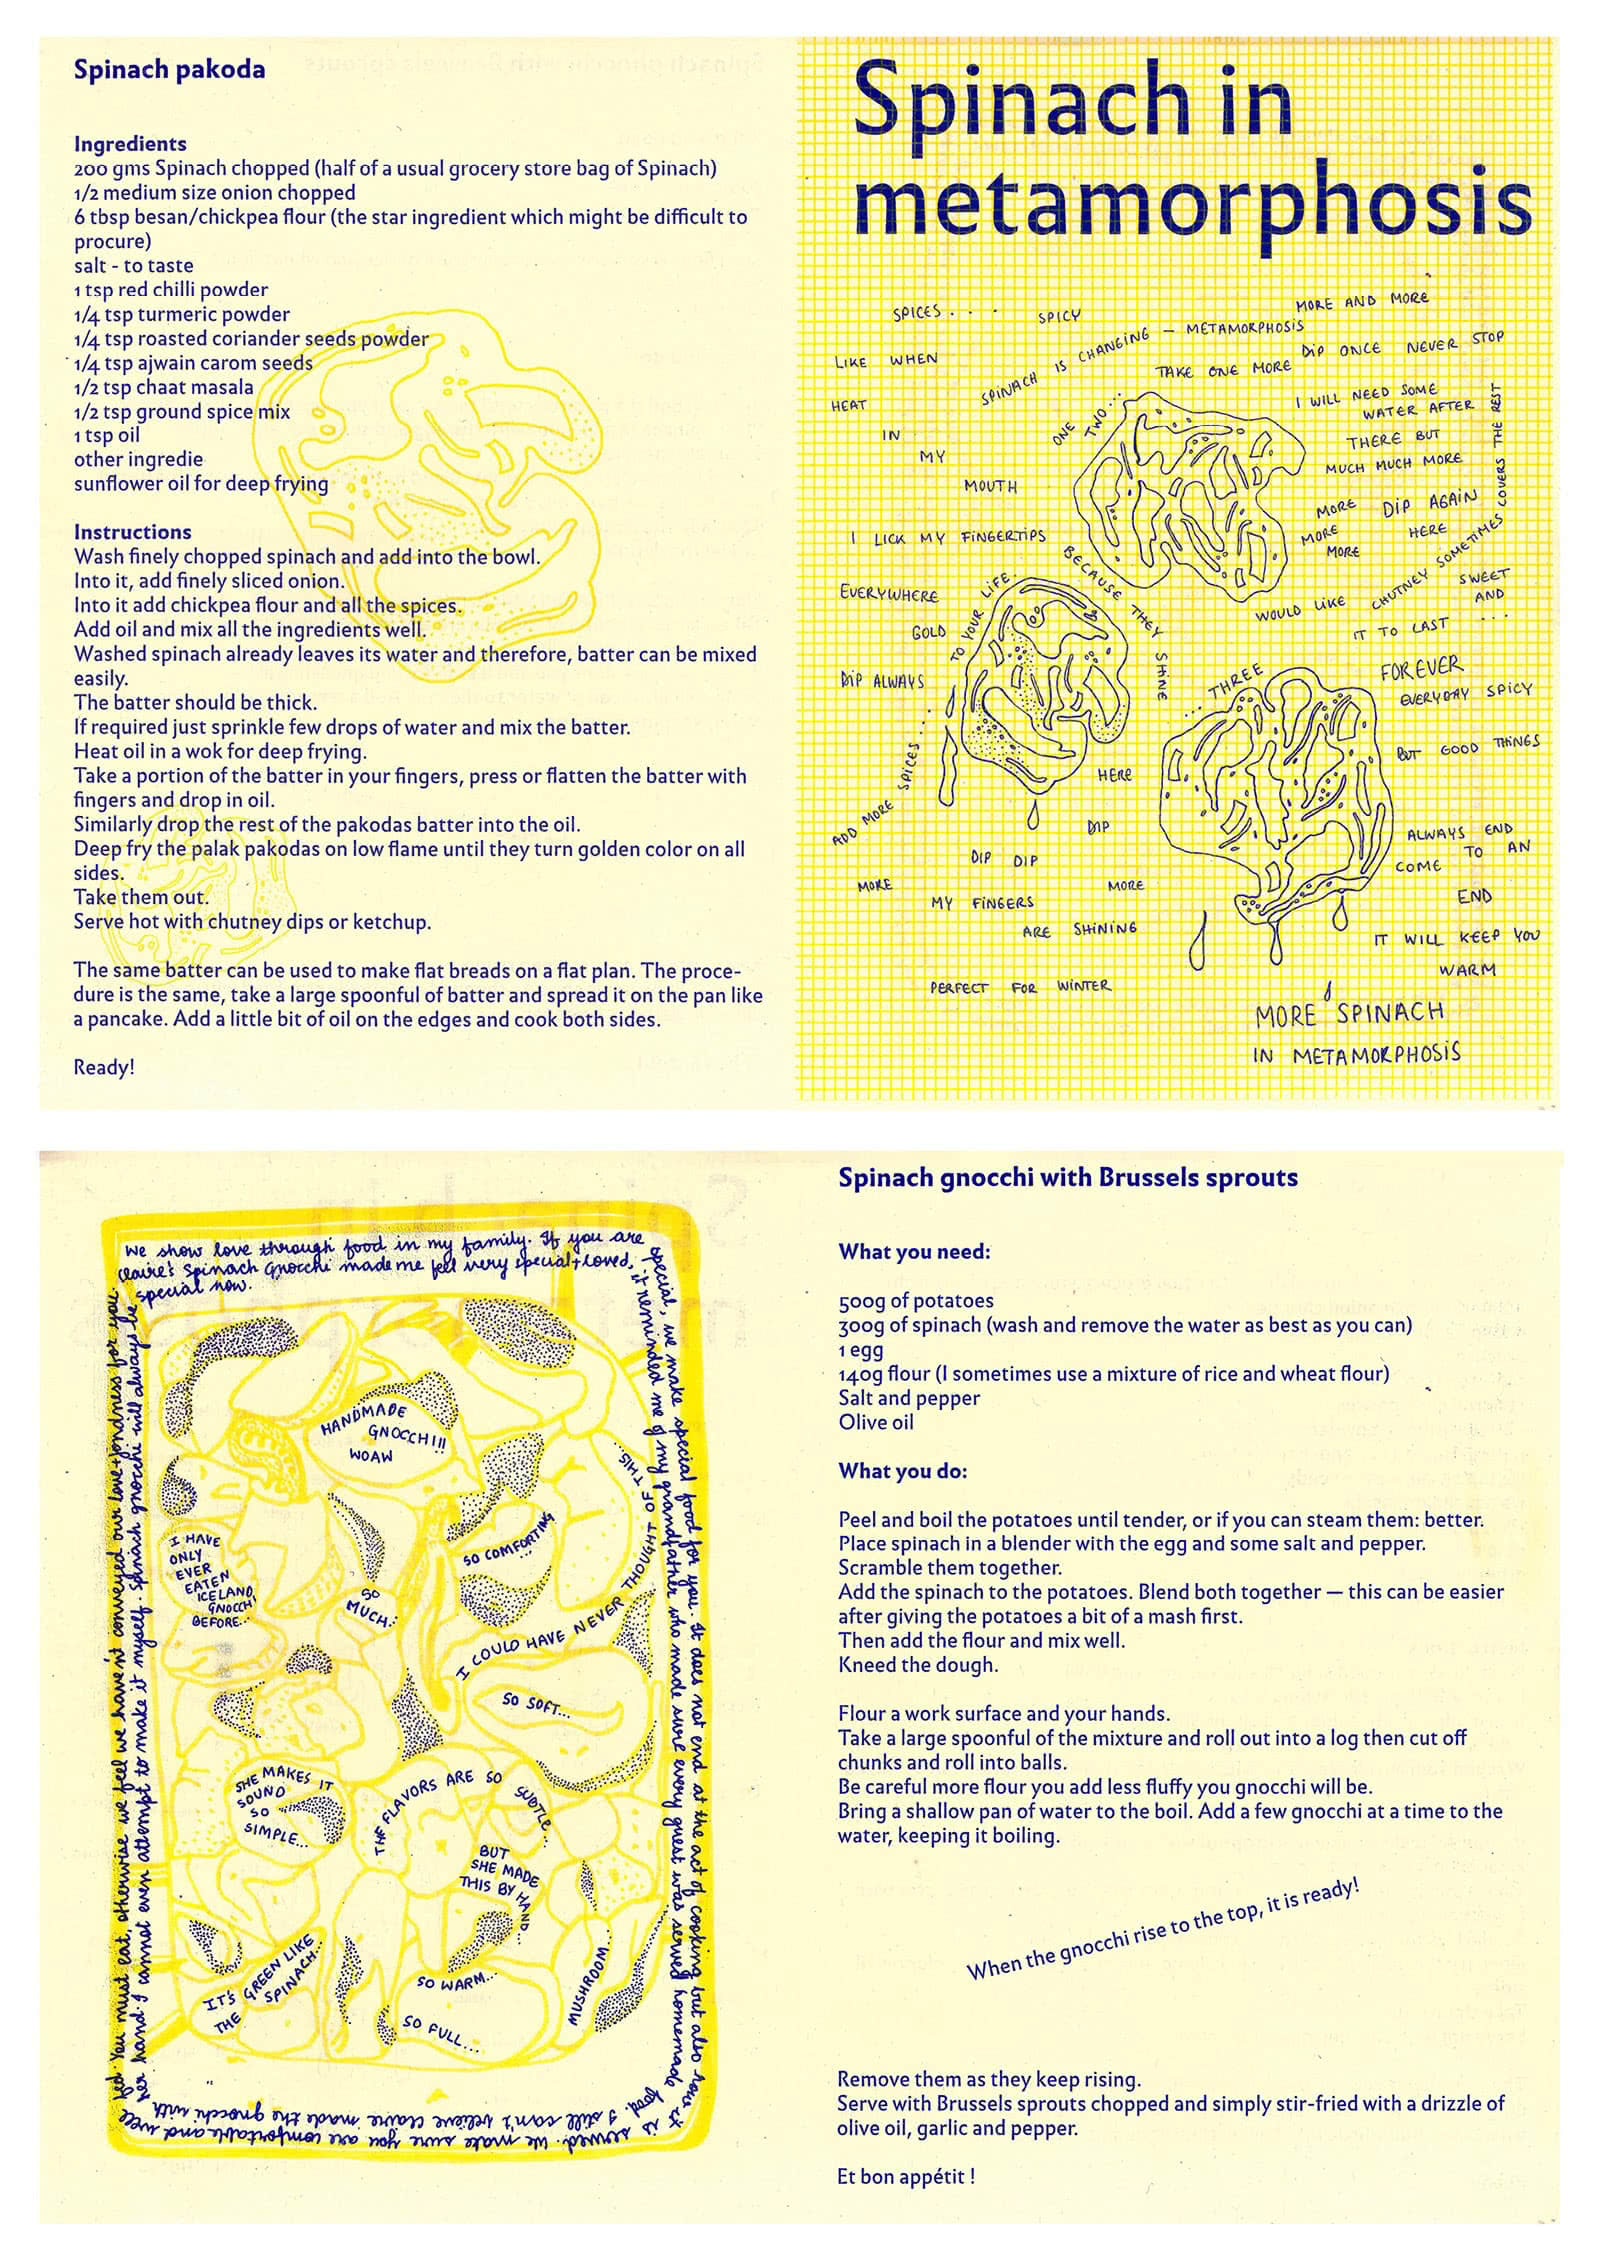 Spinach pakoda
Ingredients
200 gms Spinach chopped (half of a usual grocery store bag of Spinach)
1/2 medium size onion chopped
6 tbsp besan/chickpea flour (the star ingredient which might be difficult to
procure)
salt - to taste
1 tsp red chilli powder
1/4 tsp turmeric powder
1/4 tsp roasted coriander seeds powder
1/4 tsp ajwain carom seeds
1/2 tsp chaat masala
1/2 tsp ground spice mix
1 tsp oil
other ingredie
sunflower oil for deep frying
Instructions
Wash finely chopped spinach and add into the bowl.
Into it, add finely sliced onion.
Into it add chickpea flour and all the spices.
Add oil and mix all the ingredients well.
Washed spinach already leaves its water and therefore, batter can be mixed
easily.
The batter should be thick.
If required just sprinkle few drops of water and mix the batter.
Heat oil in a wok for deep frying.
Take a portion of the batter in your fingers, press or flatten the batter with
fingers and drop in oil.
Similarly drop the rest of the pakodas batter into the oil.
Deep fry the palak pakodas on low flame until they turn golden color on all
sides.
Take them out.
Serve hot with chutney dips or ketchup.
The same batter can be used to make flat breads on a flat plan. The proce-
dure is the same, take a large spoonful of batter and spread it on the pan like
a pancake. Add a little bit of oil on the edges and cook both sides.
Ready!
Spinach in
metamorphosis
SPICES . . .
SPICY
MORE AND MORE
LIKE WHEN
SPINACH IS CHANGING – METAMORPHOSIS
DIP ONCE NEVER STOP
TAKE ONE MORE
HEAT
IN
MY
MOUTH
ONE
TWO...
I WILL NEED SOME
WATER AFTER
THERE BUT
MUCH MUCH MORE
MORE DIP AGAIN
MORE HERE
MORE
CHUTNEY SOMETIMES COVERS THE REST
I LICK MY FINGERTIPS
BECAUSE THEY SHINE
EVERYWHERE
GOLD
DIP ALWAYS
ADD MORE SPICES ...
TO YOUR LIFE.
SWEET
AND
...
WOULD LIKE
IT TO LAST
FOREVER
... THREE
EVERYDAY SPICY
BUT GOOD THINGS
HERE
DIP
DIP DIP
MORE
MORE
MY FINGERS
ARE SHINING
PERFECT FOR WINTER
ALWAYS END
COME TO AN
END
IT WILL KEEP YOU
WARM
MORE SPINACH
IN METAMORPHOSIS
We show love through food in my family. If you are special, we make special food for you. It does not end at the act of cooking but also how it is served. We make sure you are comfortable and well fed. You must eat, otherwise we feel we haven't conveyed our love+fondness for you.
Claire's Spinach Gnocchi made me feel very special+loved, it reminded me of my grandfather who made sure every guest was served homemade food. I still can't believe Claire made the gnocchi with her hand. I cannot even attempt to make it myself. Spinach gnocchi will always be
special now.
HANDMADE
GNOCCHI!!
WOAW
I HAVE
ONLY
EVER
EATEN
ICELAND
GNOCCHI
BEFORE...
SO
MUCH.
SO COMFORTING
I COULD HAVE NEVER THOUGHT OF THIS
SO SOFT...
SHE MAKES IT
SOUND
SO
SIMPLE...
THE FLAVORS ARE SO SUBTLE...
BUT
SHE MADE
THIS BY HAND...
IT'S GREEN LIKE
THE SPINACH...
SO WARM...
SO FULL...
MUSHROOM...
Spinach gnocchi with Brussels sprouts
What you need:
500g of potatoes
300g of spinach (wash and remove the water as best as you can)
1 egg
140g flour (I sometimes use a mixture of rice and wheat flour)
Salt and pepper
Olive oil
What you do:
Peel and boil the potatoes until tender, or if you can steam them: better.
Place spinach in a blender with the egg and some salt and pepper.
Scramble them together.
Add the spinach to the potatoes. Blend both together — this can be easier
after giving the potatoes a bit of a mash first.
Then add the flour and mix well.
Kneed the dough.
Flour a work surface and your hands.
Take a large spoonful of the mixture and roll out into a log then cut off
chunks and roll into balls.
Be careful more flour you add less fluffy you gnocchi will be.
Bring a shallow pan of water to the boil. Add a few gnocchi at a time to the
water, keeping it boiling.
When the gnocchi rise to the top, it is ready!
Remove them as they keep rising.
Serve with Brussels sprouts chopped and simply stir-fried with a drizzle of
olive oil, garlic and pepper.
Et bon appétit !